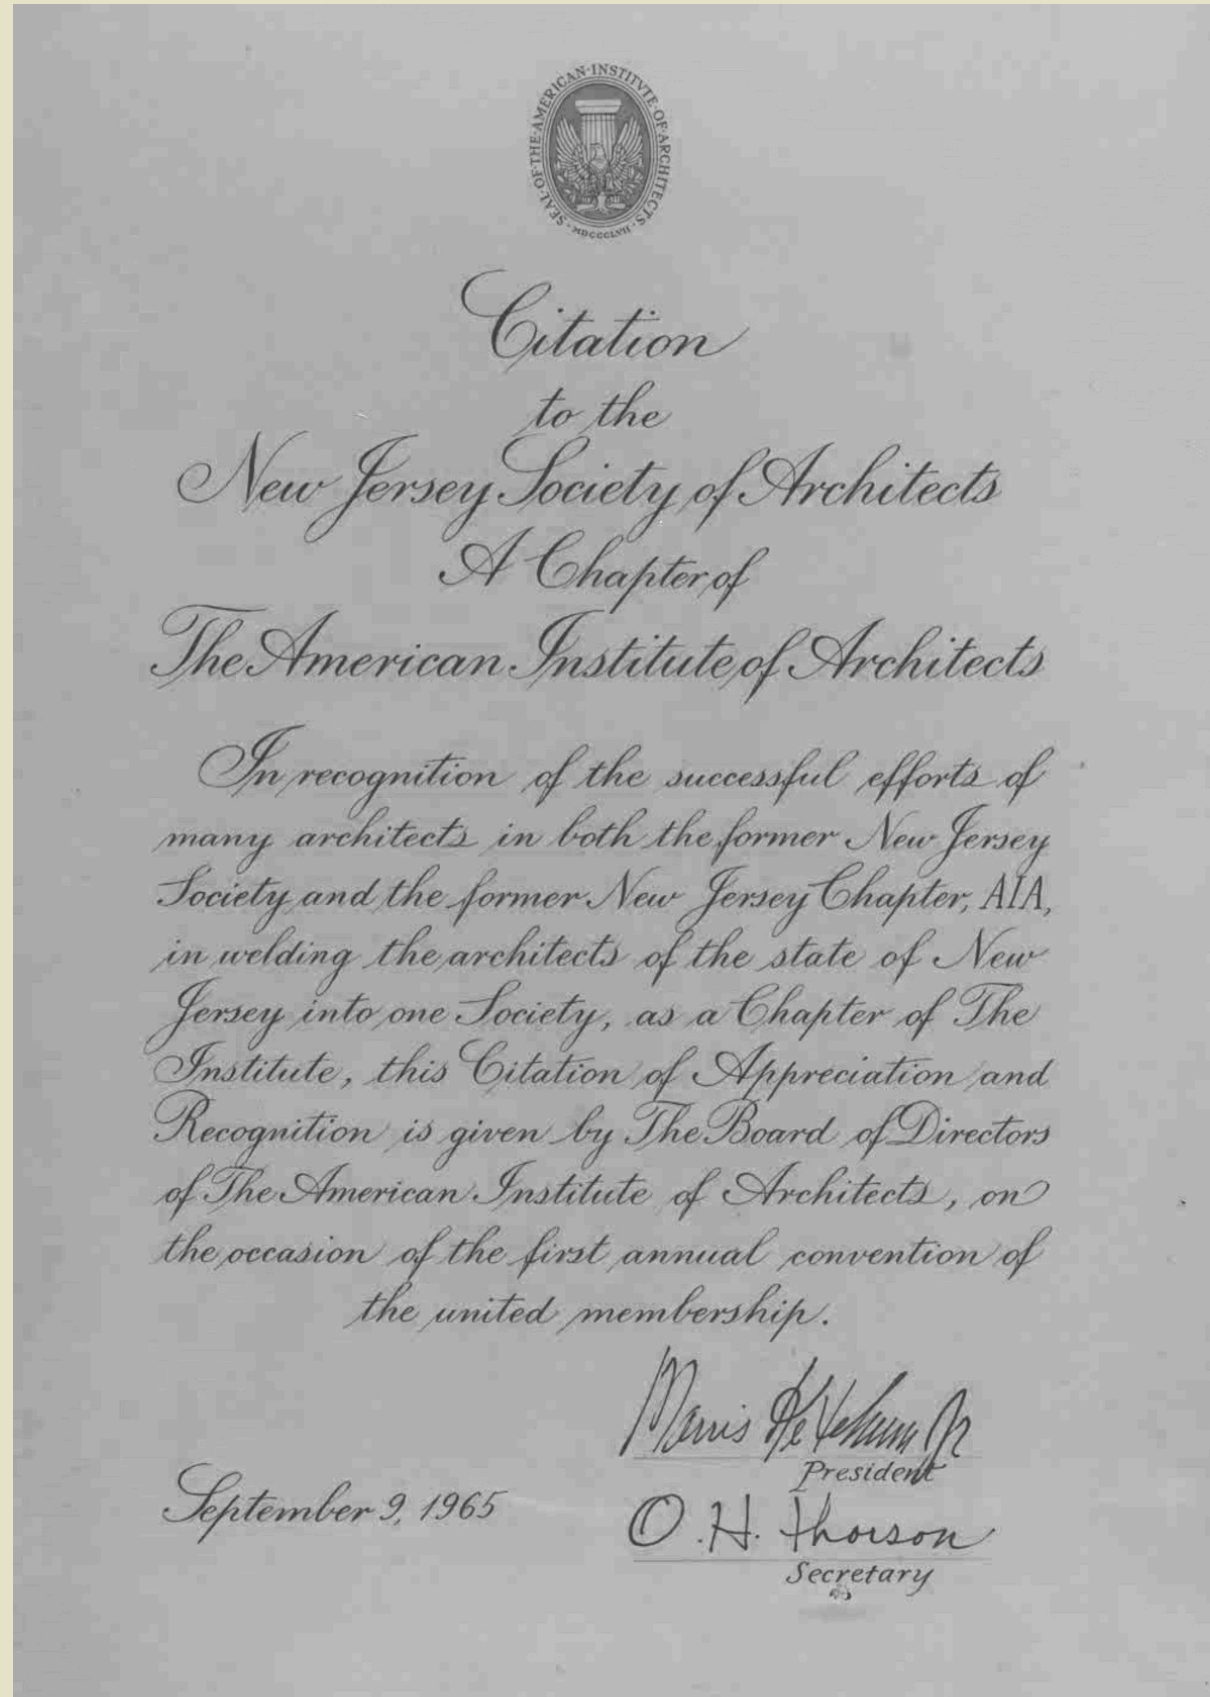 SEAL·OF·THE·AMERICAN·INSTITVTE·OF·ARCHITECTS·
·MDCCCLVII·
Citation
to the
New Jersey Society of Architects
A Chapter of
The American Institute of Architects
In recognition of the successful efforts of
many architects in both the former New Jersey
Society and the former New Jersey Chapter, AIA,
in welding the architects of the state of New
Jersey into one Society, as a Chapter of The
Institute, this Citation of Appreciation and
Recognition is given by The Board of Directors
of The American Institute of Architects, on
the occasion of the first annual convention of
the united membership.
Morris Ketchum Jr
President
September 9, 1965
O. H. Thorson
Secretary